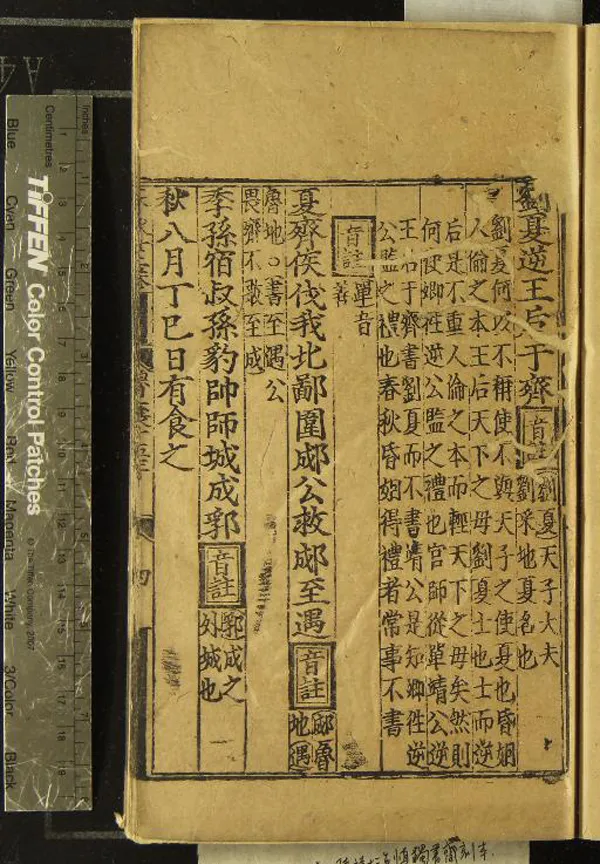 劉夏逆王后于齊 音註 劉夏天子大夫
劉采地夏名也
劉夏何以不稱使不與天子之使夏也昏姻
人倫之本王后天下之母劉夏士也士而逆
后是不重人倫之本而輕天下之母矣然則
何使卿往逆公監之禮也官師從單靖公逆
王后于齊書劉夏而不書靖公是知卿往逆
公監之禮也春秋昏姻得禮者常事不書
音註 單音
善
夏齊侯伐我北鄙圍成公救成至遇 音註 郕魯
地遇
魯地○書至遇公
畏齊不敢至成
季孫宿叔孫豹帥師城成郛 音註 郛成之
外城也
秋八月丁巳日有食之
四
Inches
Centimetres
TIFFEN Color Control Patches
© The Tiffen Company, 2007
Blue
Cyan
Green
Yellow
Red
Magenta
White
3/Color
Black
A4